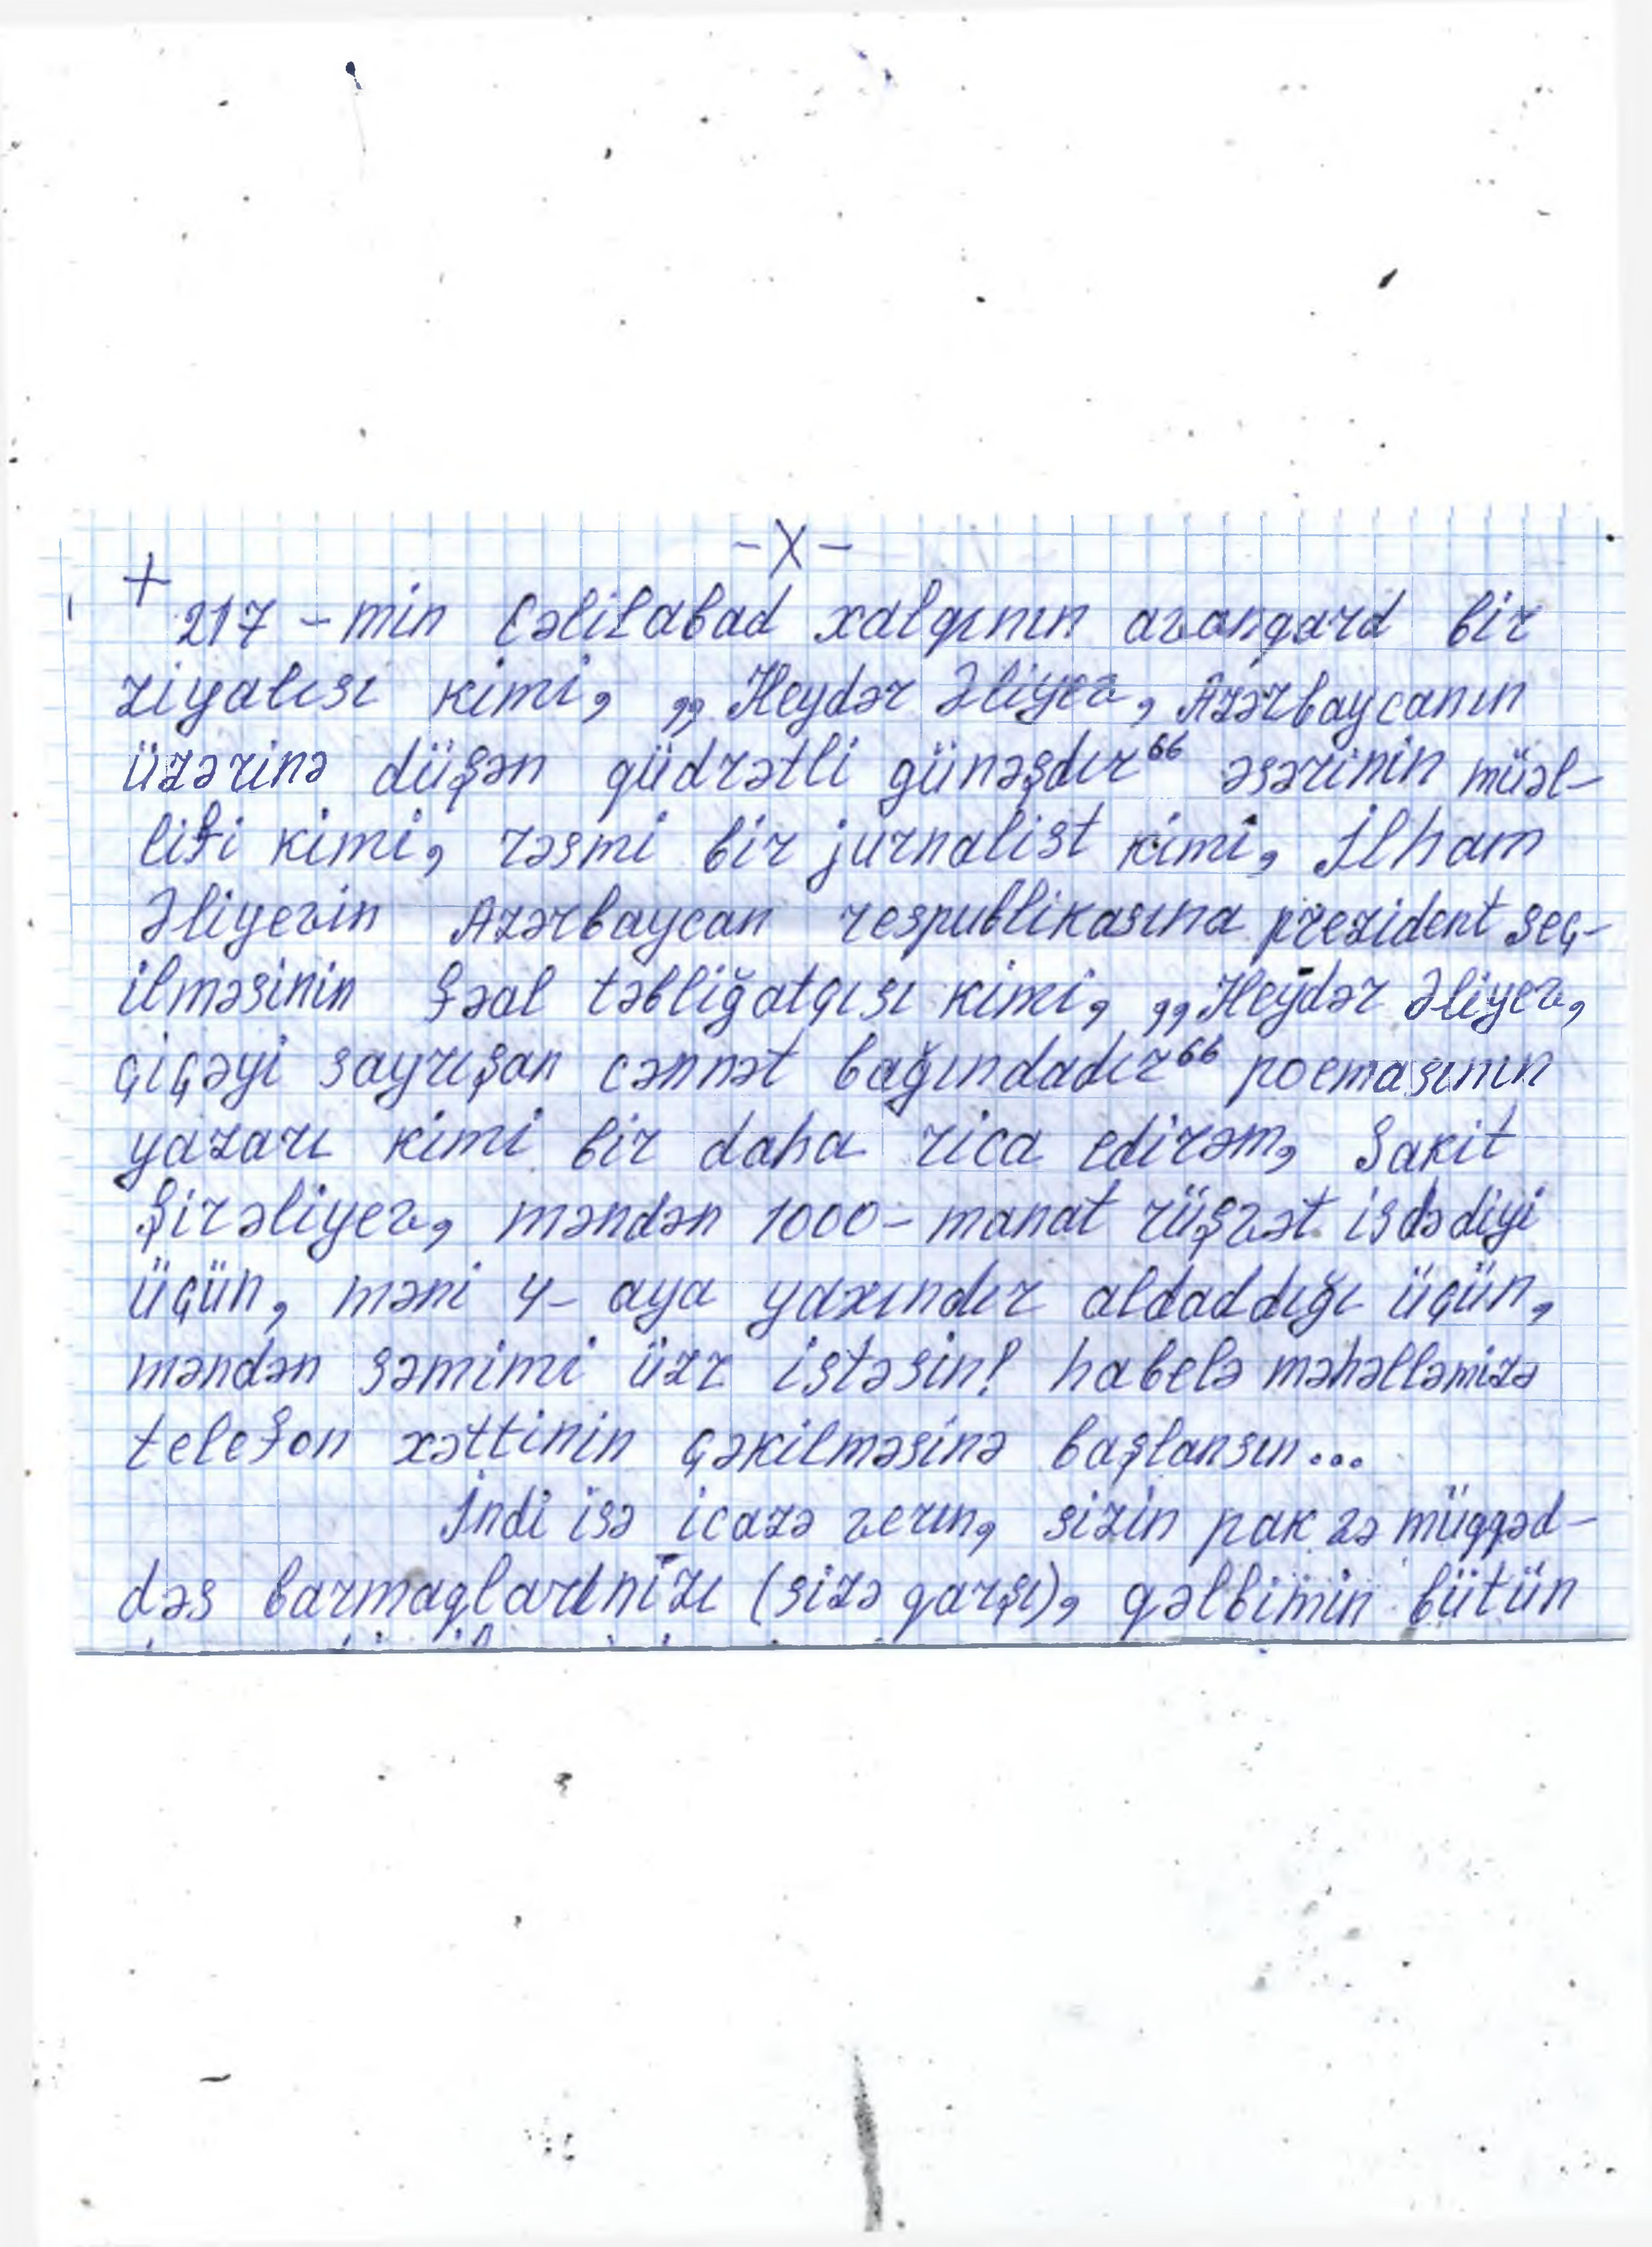 -X-
+
217 - min Cəlilabad xalqının avangard bir
ziyalısı kimi, „Heydər Əliyev, Azərbaycanın
üzərinə düşən qüdrətli günəşdır“ əsərinin müəl-
lifi kimi, rəsmi bir jurnalist kimi, İlham
Əliyevin Azərbaycan respublikasına prezident seç-
ilməsinin fəal təbliğatçısı kimi, „Heydər Əliyev,
çiçəyi sayrışan cənnət bağındadır“ poemasının
yazarı kimi bir daha rica edirəm, Sakit
Şirəliyev, məndən 1000 - manat rüşvət isdədiyi
üçün, məni 4 - aya yaxındır aldaddığı üçün,
məndən səmimi üzr istəsin! habelə məhəlləmizə
telefon xəttinin çəkilməsinə başlansın...
İndi isə icazə verın, sizin pak və müqqəd-
dəs barmaqlarınızı (sizə qarşı), qəlbimin bütün